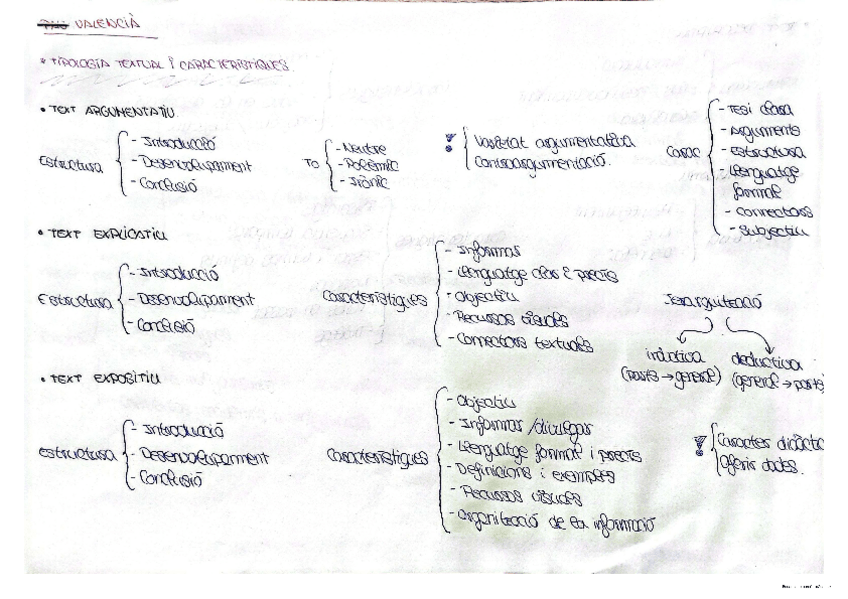 VALENCIÀ
* TIPOLOGIA TEXTUAL I CARACTERÍSTIQUES.
• TEXT ARGUMENTATIU.
Estructura
- Introducció
- Desenvolupament
- Conclusió
To
- Neutre
- Polèmic
- Irònic
Varietat argumentativa
Contraargumentació.
Carac
- Tesi clara
- Arguments
- Estructura
- Llenguatge
formal
- Connectors
- Subjectiu
• TEXT EXPLICATIU
Estructura
- Introducció
- Desenvolupament
- Conclusió
Característiques
- Informar
- Llenguatge clar i precís
- Objectiu
- Recursos visuals
- Connectors textuals
Jerarquització
inductiva
(parts → general)
deductiva
(general → parts
• TEXT EXPOSITIU
Estructura
- Introducció
- Desenvolupament
- Conclusió
Característiques
- Objectiu
- Informar/divulgar
- Llenguatge formal i precís
- Definicions i exemples
- Recursos visuals
- Organització de la informació
Caràcter didàctic
Oferir dades.